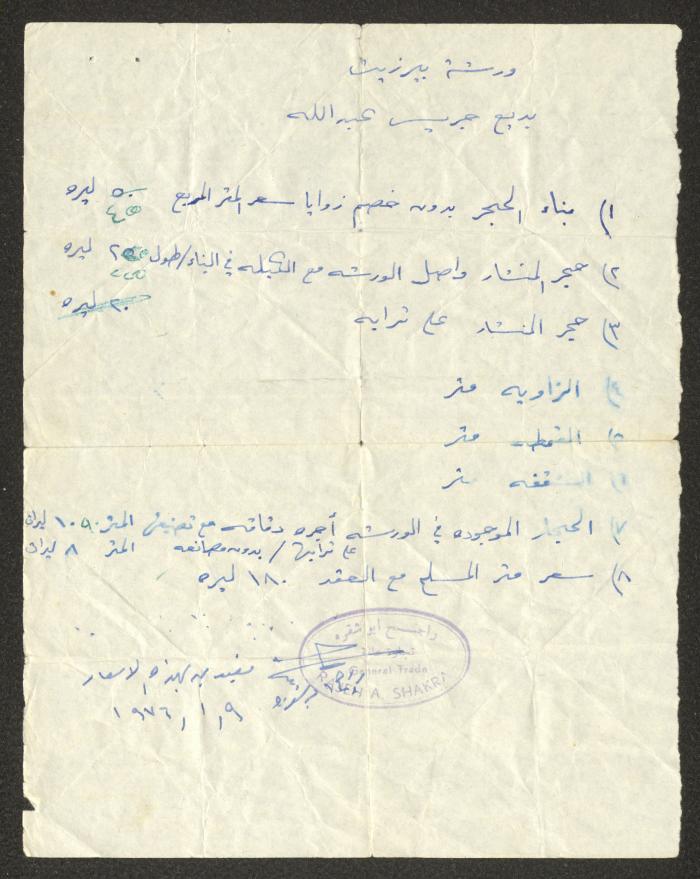 ورشة بيرزيت
بديع جريس عبدالله
١) بناء الحجر بدون خصم زوايا سعر المتر المربع ٥٠ ليره
٤٥
٢) حجر المنشار واصل الورشه مع التكحيله في البناء/طول ليره
٣) حجر المنشار على ترابه ليره
٤) الزاويه متر
٥) القمطه متر
٦) الشقفه متر
٧) الحجار الموجوده في الورشه أجره دقاقه مع تصنيع المتر ١٠ ليرات
على ترابها / بدون مصانعه المتر ٨ ليرات
٨) سعر متر المسلح مع العقد ١٨٠ ليره
راجح ابو شقره
General Trade
RAJEH A. SHAKRI
بهذه الاسعار
١٩٧٦/١/٩